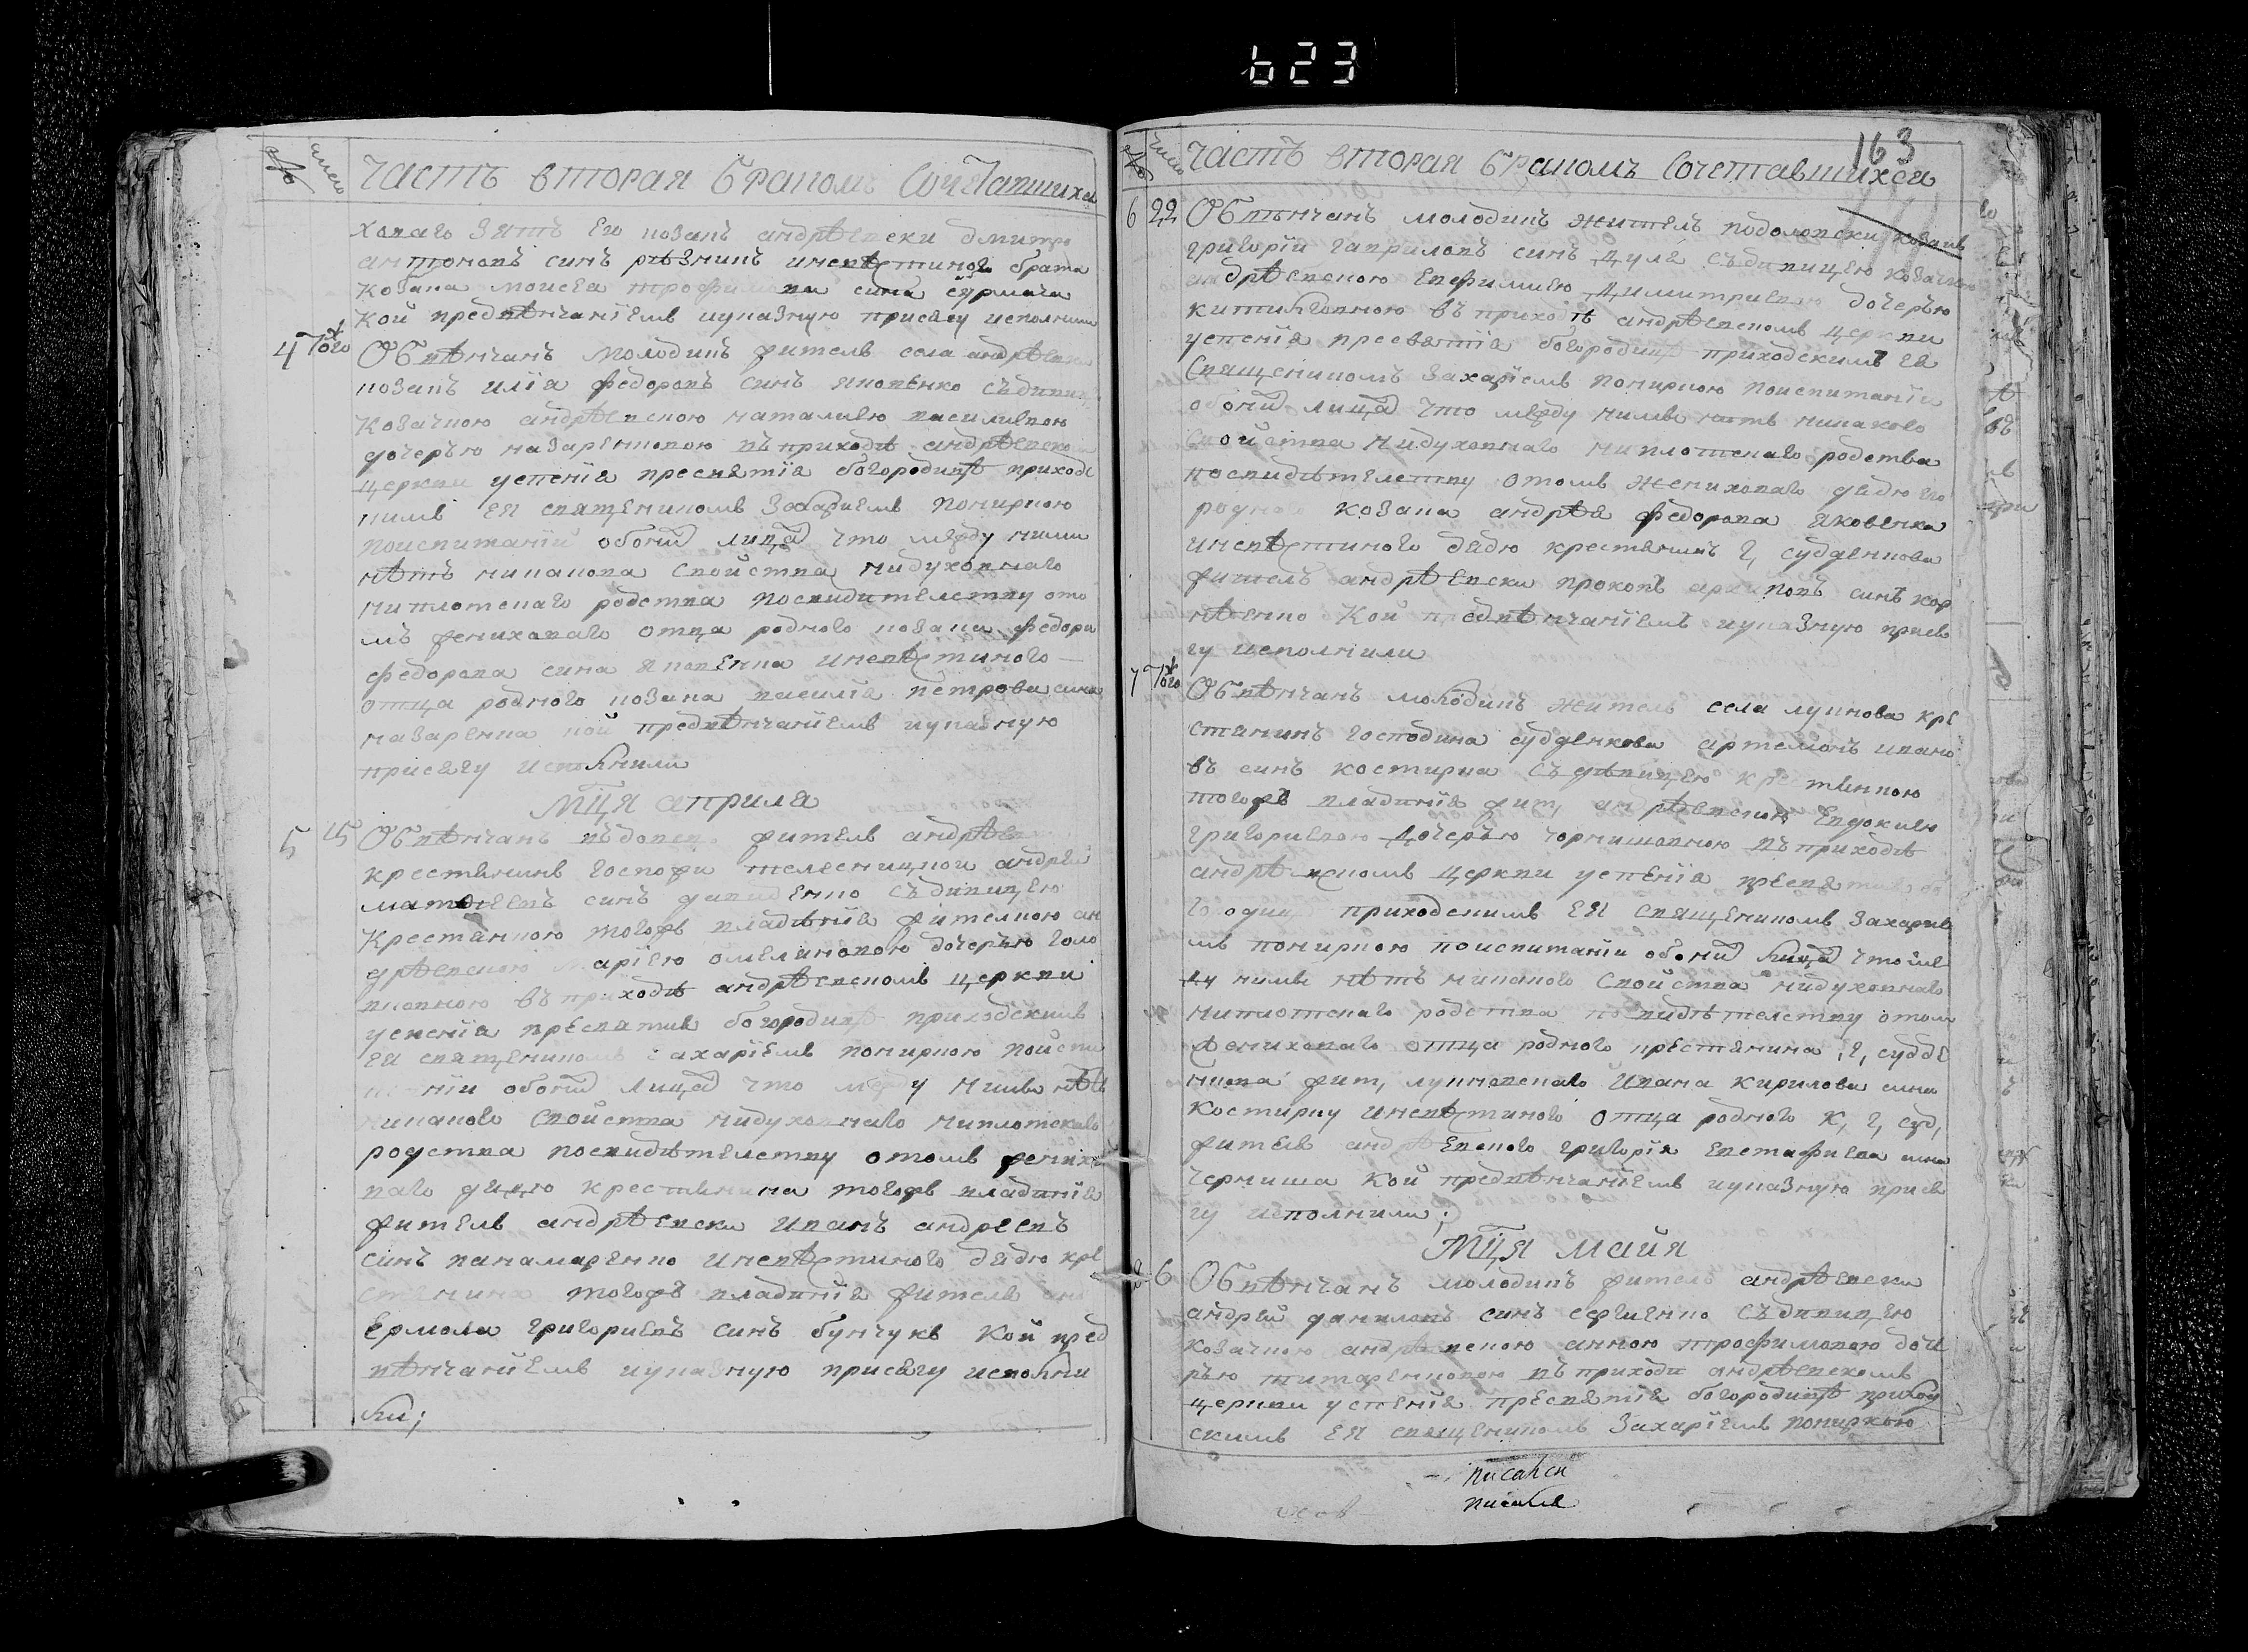 623
163
№ число Часть вторая браком Сочетавшихся
ховаго зять Его козакъ андрѣевски дмитро
антоновъ синъ рѣзникъ иневѣстиного брата
козака моисея трофимова сина сурмача
кой предвѣнчаніемъ иуказную присягу исполнили
4 Того ж Обвѣнчанъ молодикъ житель села андрѣевки
козакъ иліа федоровъ синъ яковенко съдивицею
козачкою андрѣевскою наталиею василиевою
дочерью назаренковою въприходѣ андрѣевской
церкви успеніа пресвятіа богородицѣ приходс
кимъ ея священикомъ Захариемъ Пониркою
поиспитаніи обоихъ лицъ что между ними
нѣтъ никакова свойства нидуховнаго
ниплотскаго родства посвидителству ото
мъ жениховаго отца родного козака федора
федорова сина яковенка иневѣстиного
отца родного козака василіа петрова сина
назаренка кой предвѣнчаніемъ иуказную
присягу исполнили
Мця априля
5 15 Обвѣнчанъ вѣдовецъ житель андрѣев
крестянинъ госпожи телесницкой андрей
матвеевъ синъ давиденко съдивицею
крестянкою тогожъ владѣніа жителкою ан
дрѣевскою маріею омеляновою дочерью голо
вковною въприходѣ андрѣевскомъ церкви
успеніа пресвятіа богородицѣ приходскимъ
ея священикомъ захаріемъ пониркою поиспи
таніи обоихъ лицъ что между ними нѣтъ
никаного свойства нидуховнаго ниплотскаго
родства посвидѣтелству отомъ женихо
ваго дядю крестянина тогожъ владиніа
житель андрѣевски иванъ андреевъ
синъ панамаренко иневѣстиного дядю кре
стянина тогожъ владиніа житель анд
Ермола григориевъ синъ бунчукъ кой пред
вѣнчаніемъ иуказную присягу исполни
ли;
№ число Часть вторая браком Сочетавшихся
6 22 Обвѣнчанъ молодикъ житель подоловски козакъ
григорій гавриловъ синъ дуля съдивицею козачкою
андрѣевскою Евфимиею димитриевою дочерью
въприходѣ андрѣевскомъ церкви
успеніа пресвятіа богородицѣ приходскимъ ея
Священикомъ захаріемъ пониркою поиспитаніи
обоихъ лицъ что между ними нѣтъ никакого
Свойства нидуховнаго ниплотскаго родства
посвидѣтелству отомъ жениховаго дядю его
родного козака андрѣя федорова яковенка
иневѣстиного дядю крестянинъ г, судденкова
житель андрѣевски прокопъ архиповъ синъ кор
нѣенко кой предвѣнчаніемъ иуказную прися
гу исполнили
7 Того ж Обвѣнчанъ молодикъ житель села лукнова кре
стянинъ господина судденкова артемонъ ивано
въ синъ костирка съдѣвицею крестянкою
тогожъ владиніа жит, андрѣевскою Евдокиею
григориевою дочерью чорнишовною въприходѣ
андрѣевскомъ церкви успеніа пресвятіа бо
городицѣ приходскимъ ея священикомъ захарие
мъ понирною поиспитаніи обоихъ лицъ что меж
ду нимы нѣтъ никаного свойства нидуховнаго
ниплотскаго родства посвидѣтелству отом
жениховаго отца родного крестянина, г, судде
нкова жит, лукновскаго Ивана кирилова сина
костирку иневѣстиного отца родного к, г, суд,
житель андрѣевского григоріа Евстафиева сина
черниша кой предвѣнчаніемъ иуказную прися
гу исполнили;
Мця майя
8 6 Обвѣнчанъ молодикъ житель андрѣевски
андрей даниловъ синъ сергиенко съдивицею
козачкою андрѣевскою анною трофимовою доче
рью титаренковою въприходи андрѣевскомъ
церкви успеніа пресвятіа богородицѣ приход
скимъ ея священикомъ Захаріемъ понирною
писался
писався